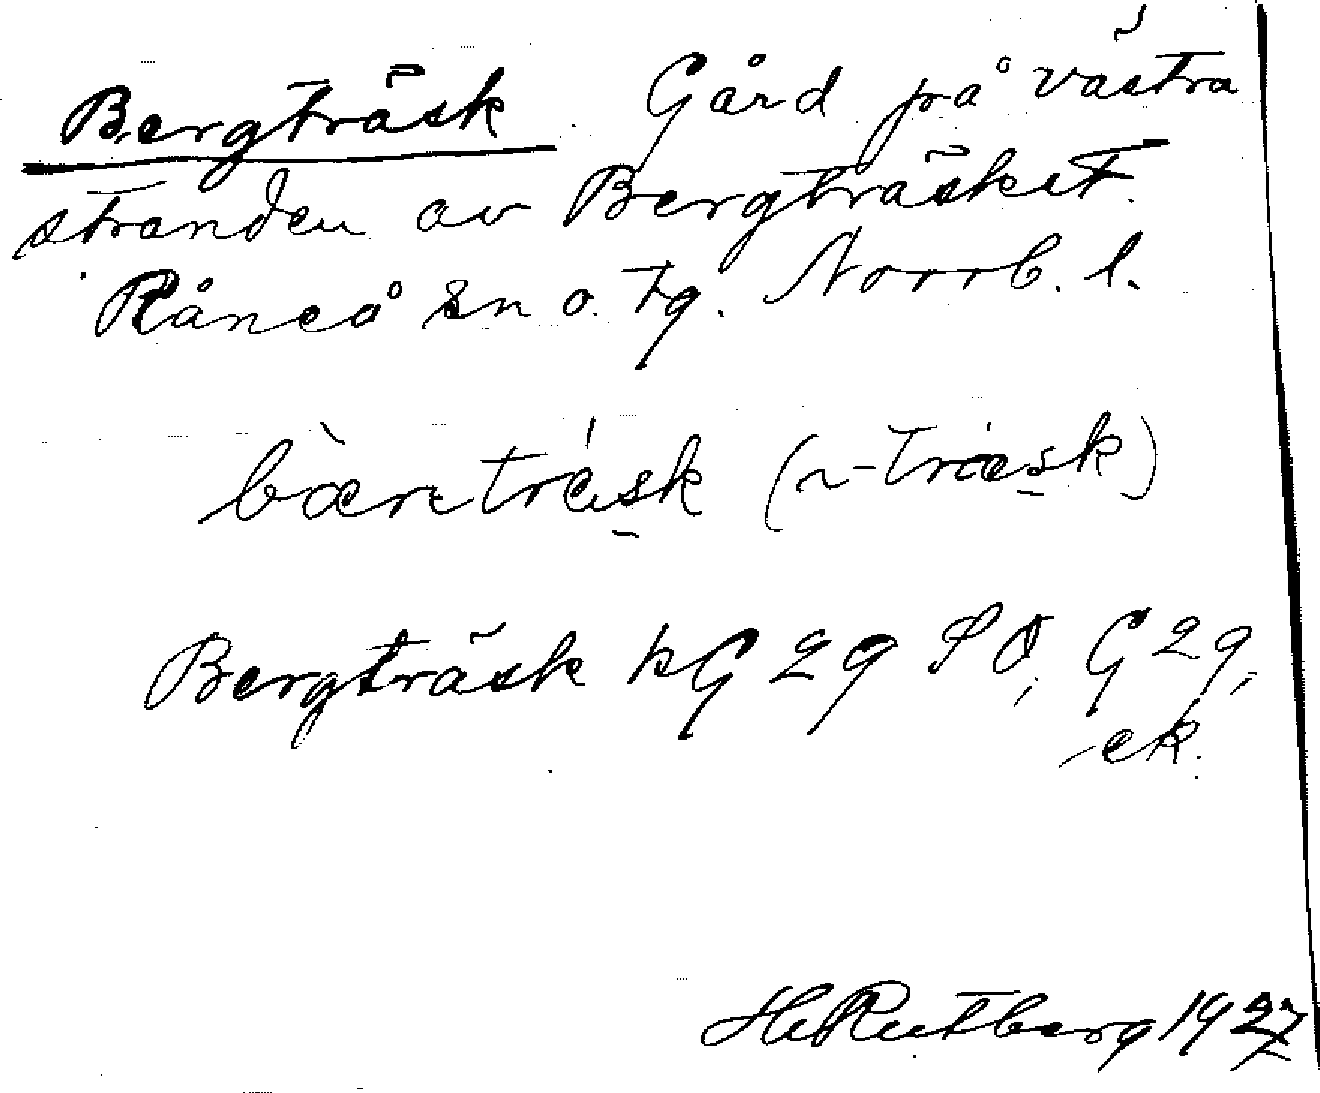 Bergträsk Gård på västra
stranden av Bergträsket.
Råneå sn o. tg. Norrb. l.
bæretræsk (~-træsk)
Bergträsk kG 29 SO, G 29,
ek.
H Rutberg 1927